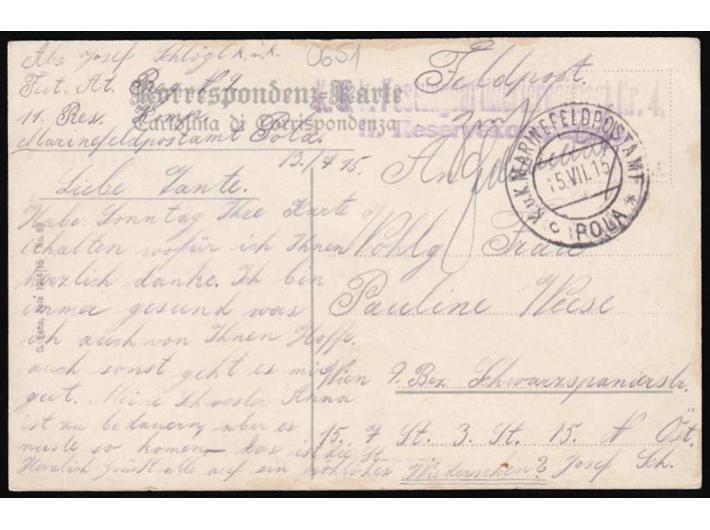 0651
Abs Josef Schlögl k.u.k.
Fest. Art. Reg. N 4
11. Res. Komp.
Marinefeldpostamt Pola.
Korrespondenz-Karte
Cartolina di Corrispondenza
Feldpost.
K.u.k. Festungsartillerieregiment Nr. 4.
11. Reservekomp
K.u.K. MARINEFELDPOSTAMT
15.VII.15
POLA
13./7 15.
Liebe Tante.
Habe Sonntag Ihre Karte
erhalten wofür ich Ihnen
herzlich danke. Ich bin
immer gesund was
ich auch von Ihnen Hoffe.
auch sonst geht es mir
gut. Meine Schwester Anna
ist zu bedauern, aber es
muste so komen, das ist die
Herzlich Grüst alle auf ein fröhliches Wiedersehen? Josef Sch.
An
Wohlg Frau
Pauline Weese
Wien 9. Bez. Schwarzspanierstr.
15. 7 St. 3. St. 15. N Öst.